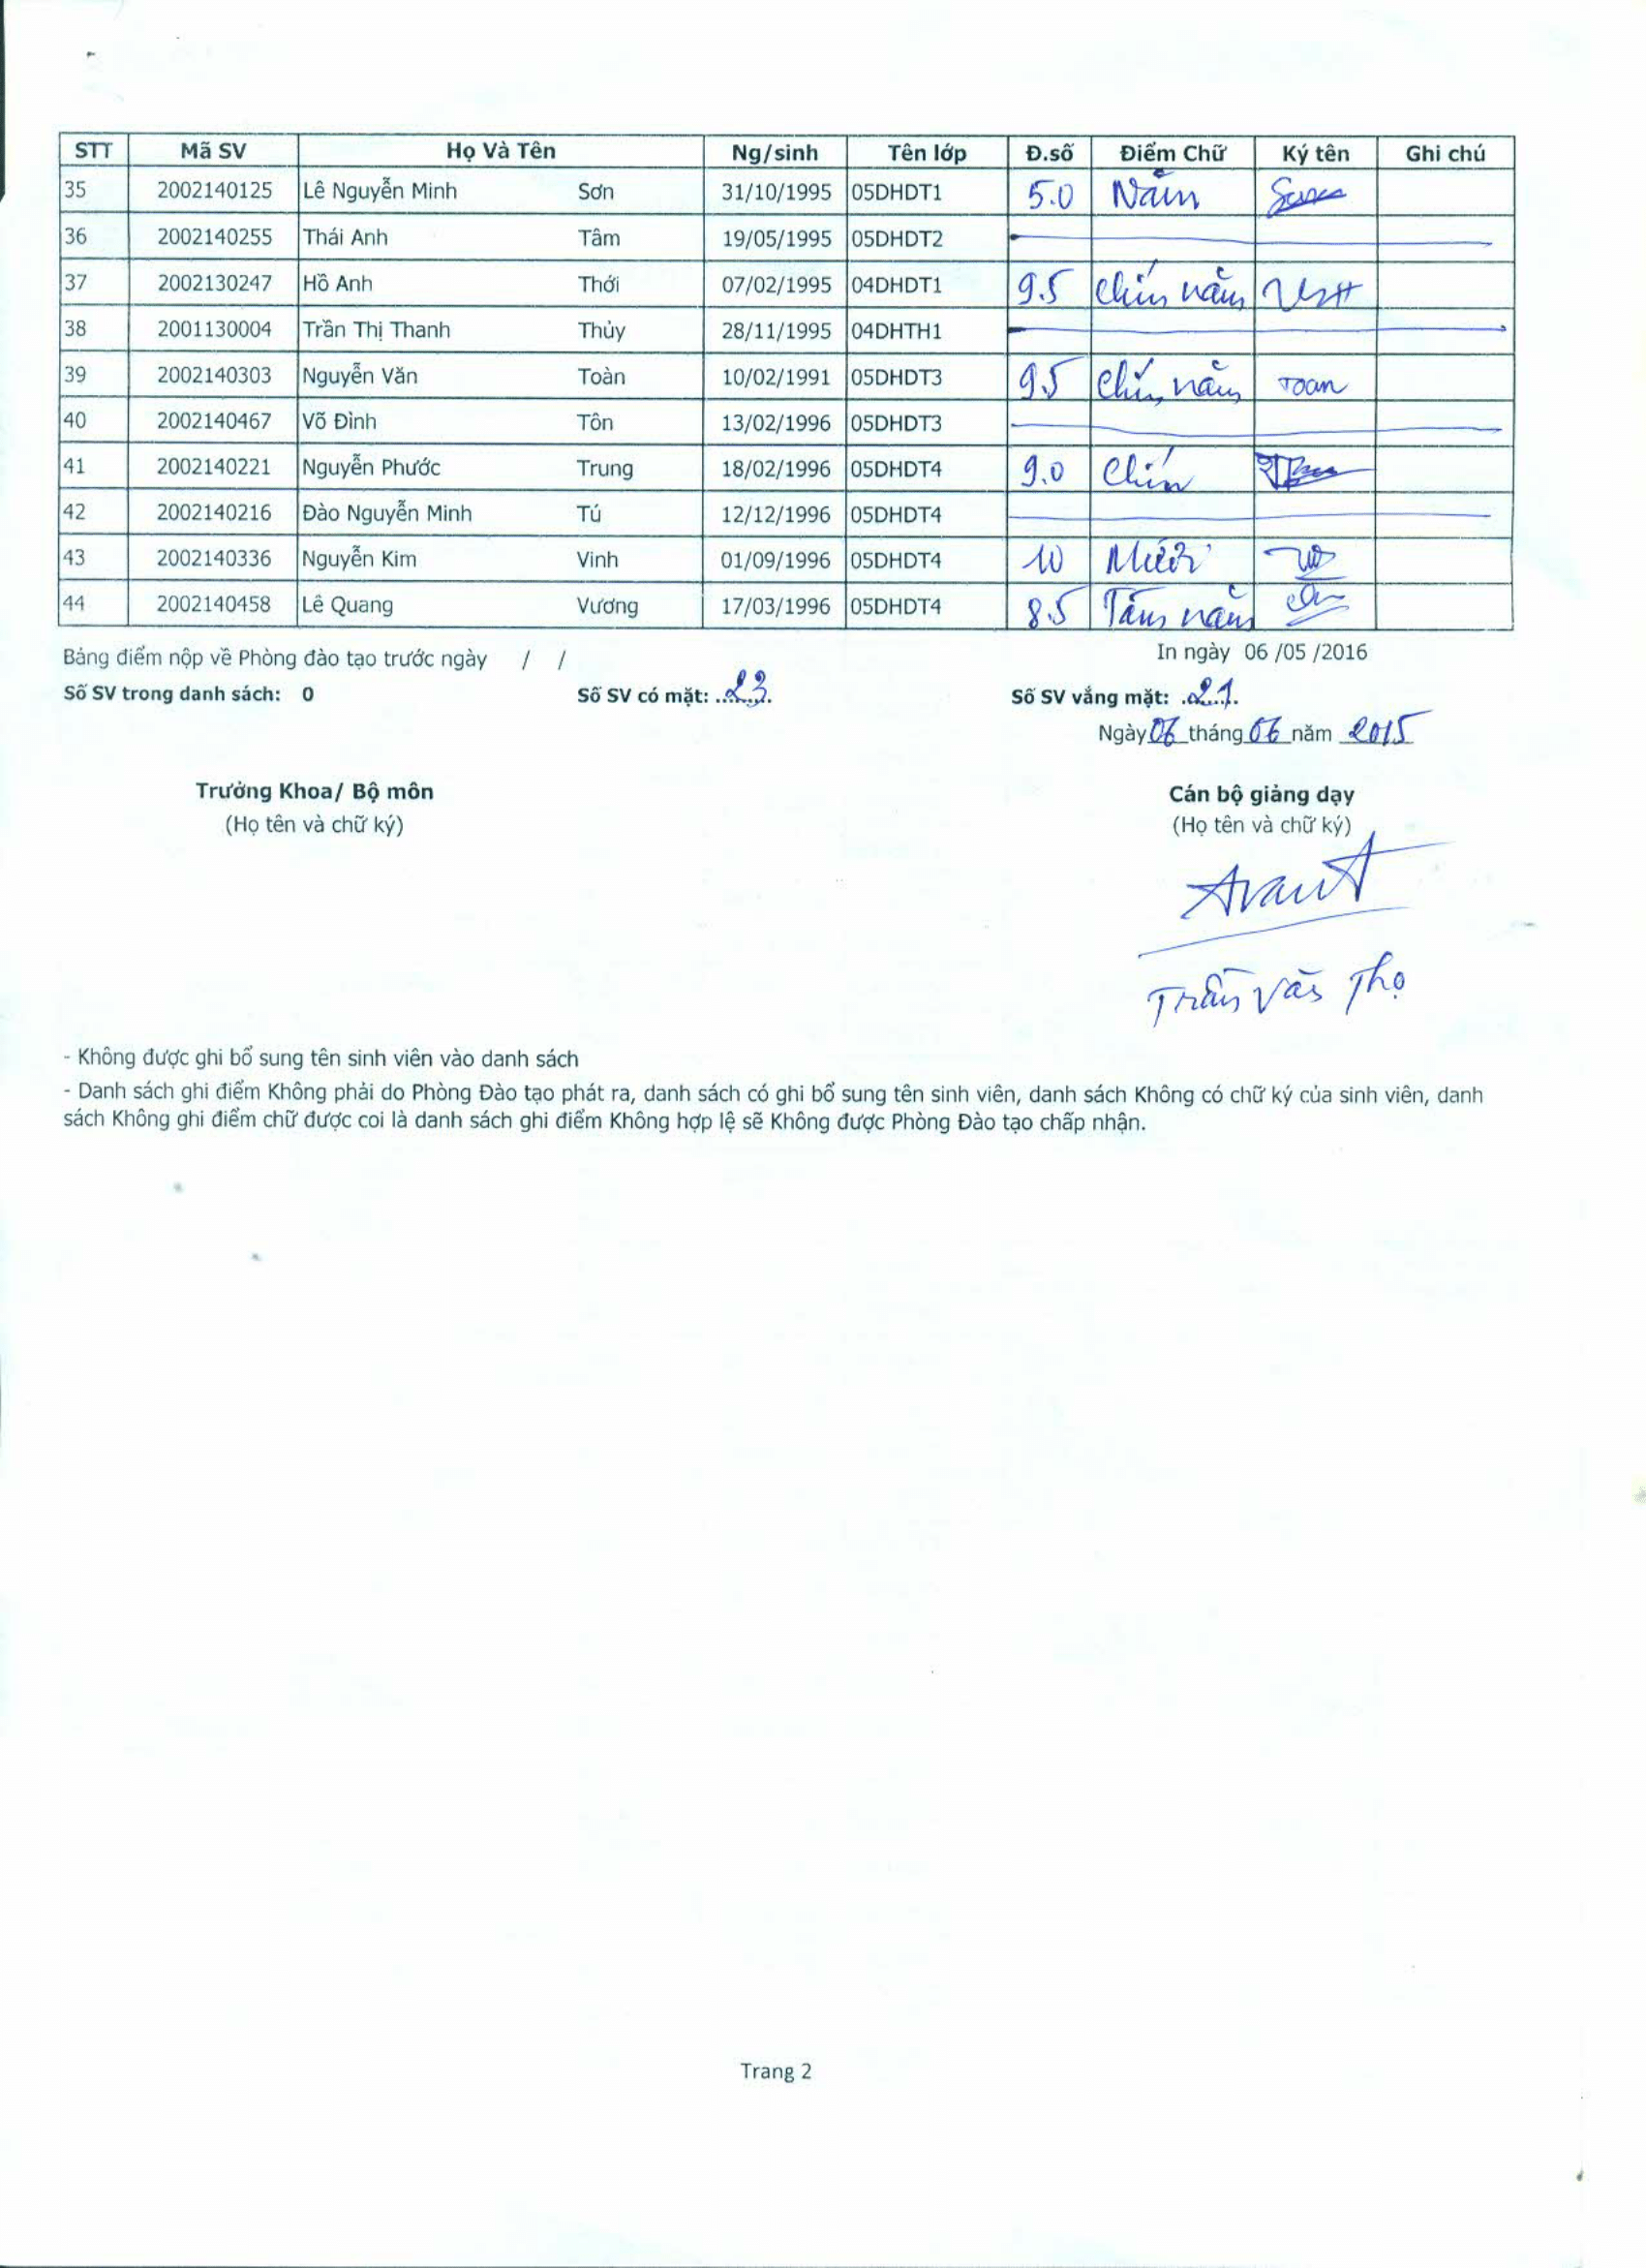 STT Mã SV Họ Và Tên Ng/sinh Tên lớp Đ.số Điểm Chữ Ký tên Ghi chú
35 2002140125 Lê Nguyễn Minh Sơn 31/10/1995 05DHDT1 5.0 Năm
36 2002140255 Thái Anh Tâm 19/05/1995 05DHDT2
37 2002130247 Hồ Anh Thới 07/02/1995 04DHDT1 9.5 Chín năm
38 2001130004 Trần Thị Thanh Thủy 28/11/1995 04DHTH1
39 2002140303 Nguyễn Văn Toàn 10/02/1991 05DHDT3 9.5 Chín năm Toan
40 2002140467 Võ Đình Tôn 13/02/1996 05DHDT3
41 2002140221 Nguyễn Phước Trung 18/02/1996 05DHDT4 9.0 Chín
42 2002140216 Đào Nguyễn Minh Tú 12/12/1996 05DHDT4
43 2002140336 Nguyễn Kim Vinh 01/09/1996 05DHDT4 10 Mười
44 2002140458 Lê Quang Vương 17/03/1996 05DHDT4 8.5 Tám năm
Bảng điểm nộp về Phòng đào tạo trước ngày / / In ngày 06 /05 /2016
Số SV trong danh sách: 0 Số SV có mặt: 23. Số SV vắng mặt: 21.
Ngày 06 tháng 06 năm 2015
Trưởng Khoa/ Bộ môn Cán bộ giảng dạy
(Họ tên và chữ ký) (Họ tên và chữ ký)
Trần Văn Thọ
- Không được ghi bổ sung tên sinh viên vào danh sách
- Danh sách ghi điểm Không phải do Phòng Đào tạo phát ra, danh sách có ghi bổ sung tên sinh viên, danh sách Không có chữ ký của sinh viên, danh
sách Không ghi điểm chữ được coi là danh sách ghi điểm Không hợp lệ sẽ Không được Phòng Đào tạo chấp nhận.
Trang 2